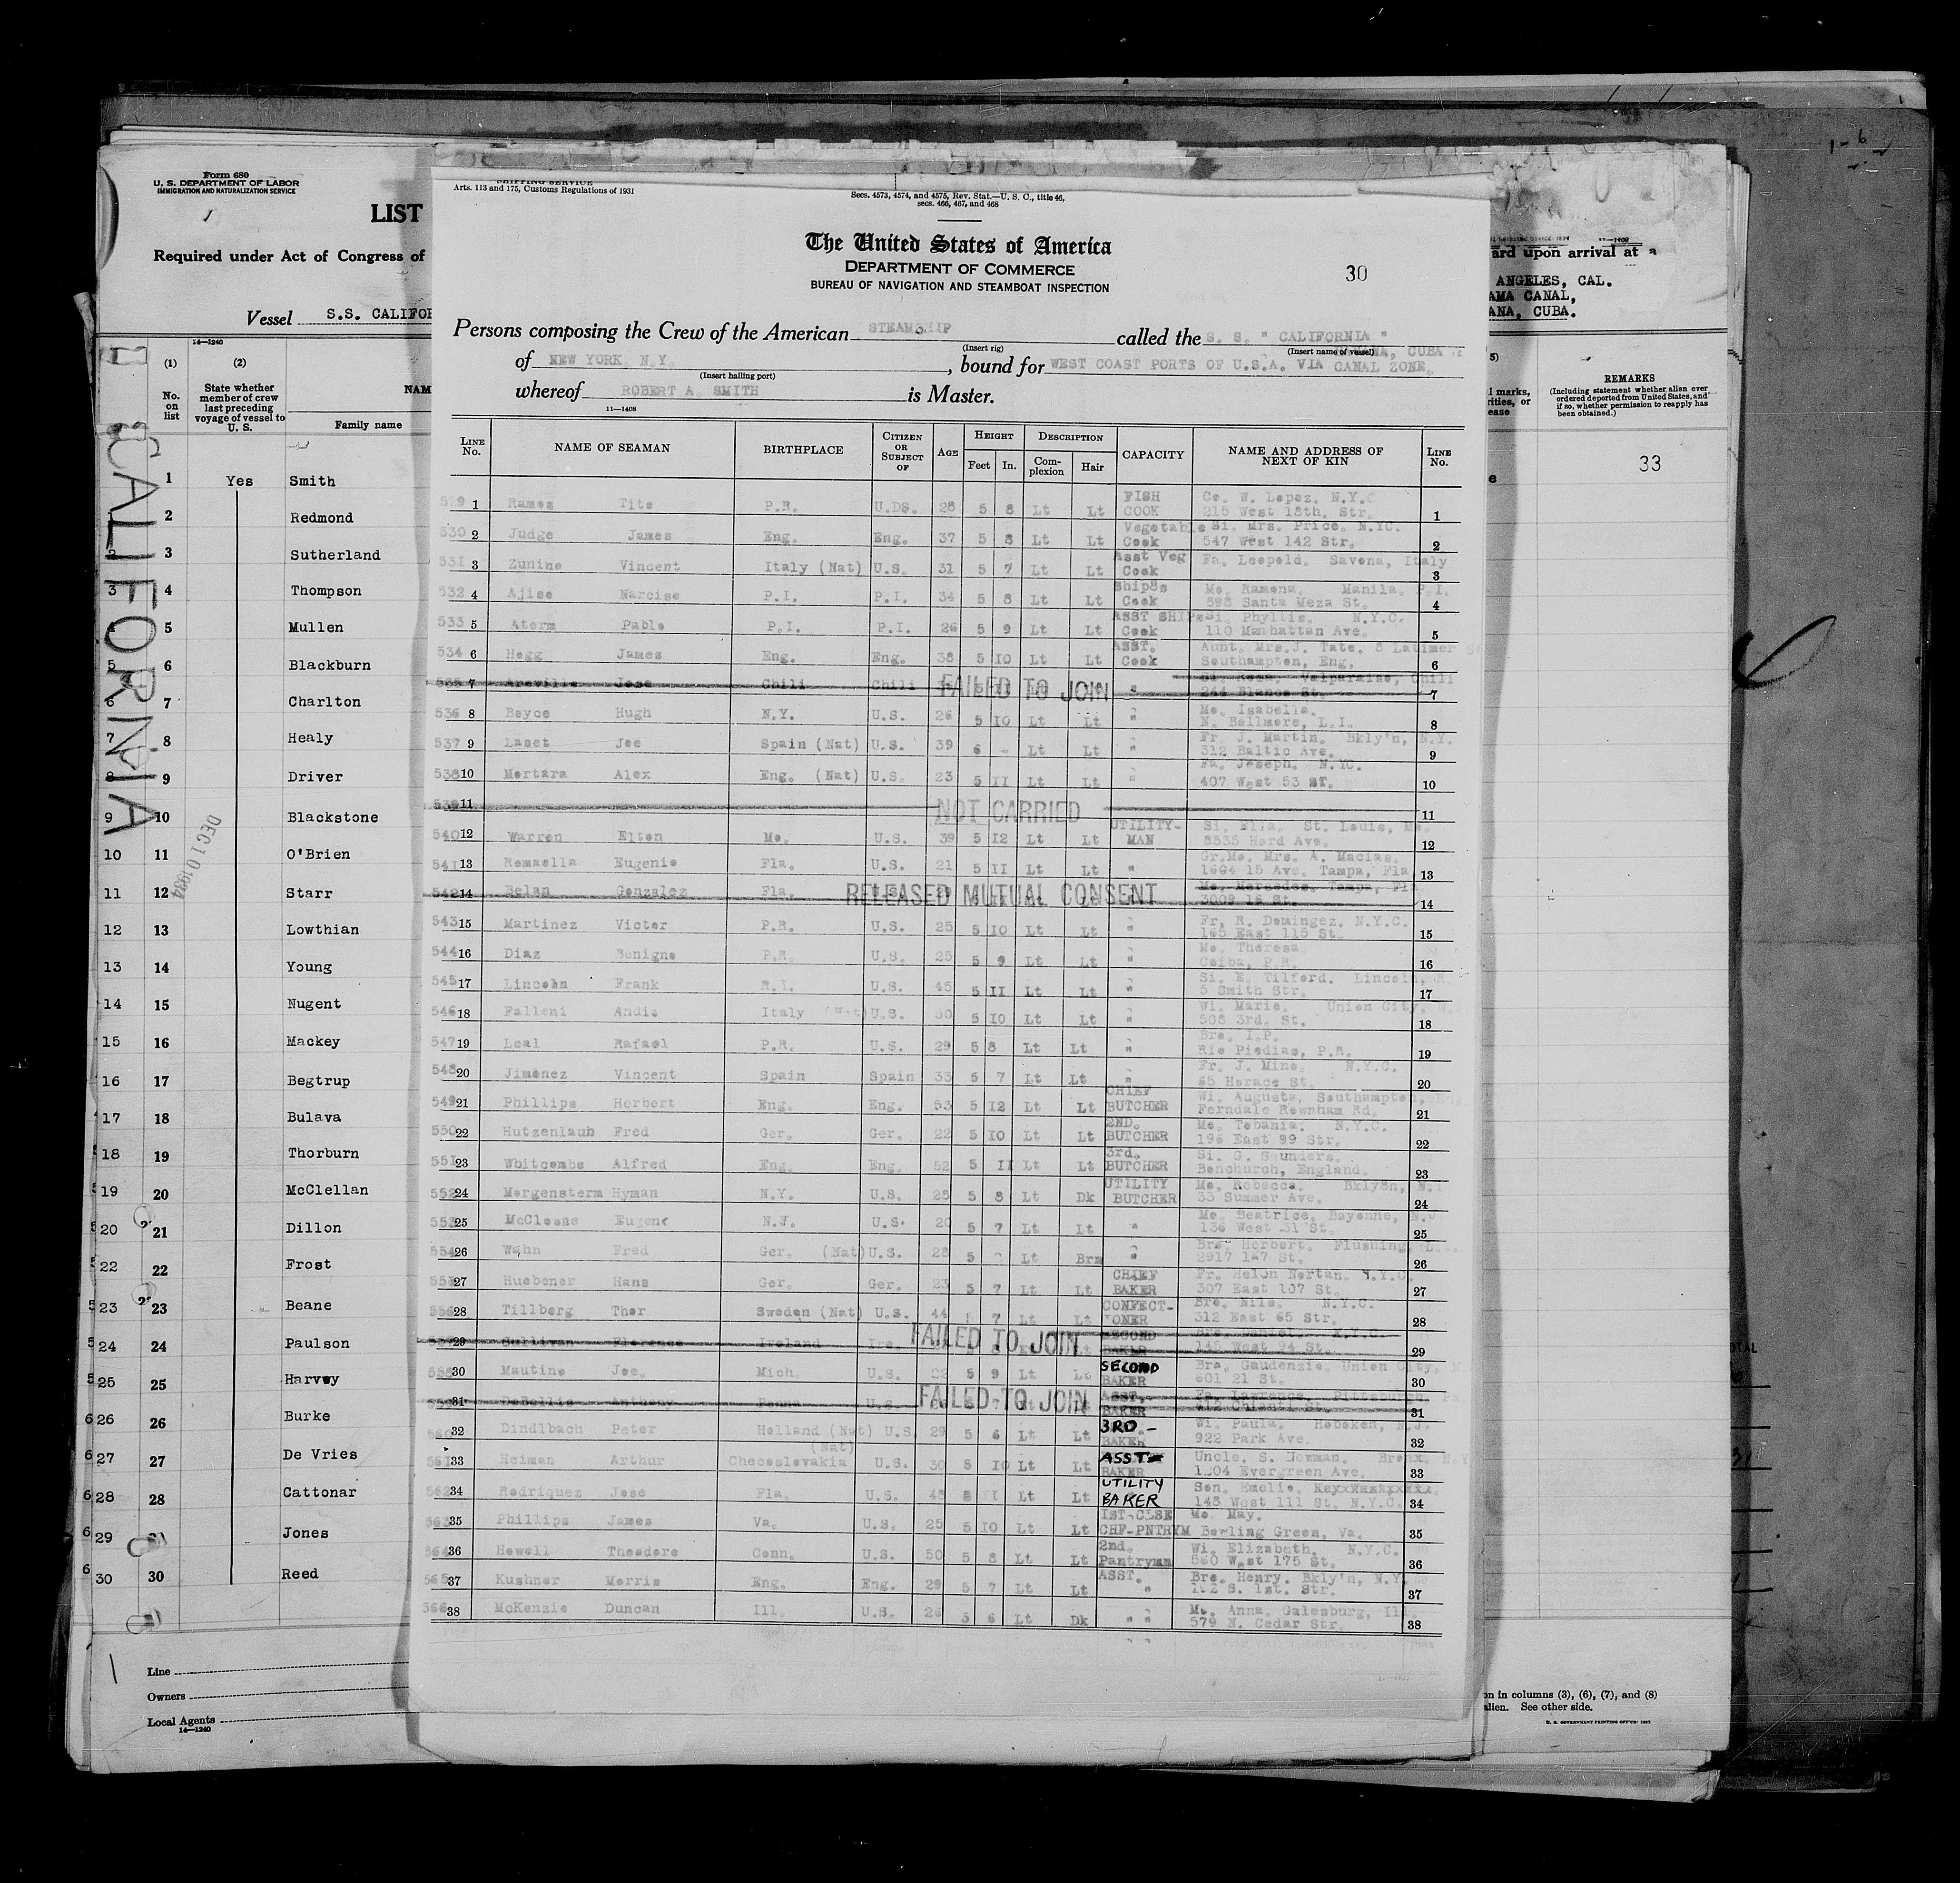 Form 680
U. S. DEPARTMENT OF LABOR
IMMIGRATION AND NATURALIZATION SERVICE
LIST
Required under Act of Congress of
Vessel S.S. CALIFOR
14—1240
(1) (2)
No. on list
State whether member of crew last preceding voyage of vessel to U. S.
NAM
Family name
CALIFORNIA
DEC 10 1934
1 Yes Smith
2 Redmond
3 Sutherland
3 4 Thompson
5 Mullen
5 6 Blackburn
6 7 Charlton
7 8 Healy
8 9 Driver
9 10 Blackstone
10 11 O'Brien
11 12 Starr
12 13 Lowthian
13 14 Young
14 15 Nugent
15 16 Mackey
16 17 Begtrup
17 18 Bulava
18 19 Thorburn
19 20 McClellan
20 21 Dillon
22 22 Frost
23 23 Beane
24 24 Paulson
25 25 Harvey
26 26 Burke
27 27 De Vries
28 28 Cattonar
29 Jones
30 30 Reed
Line
Owners
Local Agents
14—1240
SHIPPING SERVICE
Arts. 113 and 175, Customs Regulations of 1931
Secs. 4573, 4574, and 4575, Rev. Stat.—U. S. C., title 46,
secs. 466, 467, and 468
The United States of America
DEPARTMENT OF COMMERCE
BUREAU OF NAVIGATION AND STEAMBOAT INSPECTION
30
Persons composing the Crew of the American STEAMSHIP called the S. S. " CALIFORNIA "
(Insert rig) (Insert name of vessel) CUBA &
of NEW YORK N.Y. , bound for WEST COAST PORTS OF U.S.A. VIA CANAL ZONE.
(Insert hailing port)
whereof ROBERT A. SMITH is Master.
11—1408
LINE No. NAME OF SEAMAN BIRTHPLACE CITIZEN OR SUBJECT OF AGE HEIGHT Feet In. DESCRIPTION Complexion Hair CAPACITY NAME AND ADDRESS OF NEXT OF KIN LINE No.
529 1 Ramos Tito P.R. U.DS. 28 5 8 Lt Lt FISH COOK Co. W. Lopez. N.Y.C 215 West 18th. Str. 1
530 2 Judge James Eng. Eng. 37 5 8 Lt Lt Vegetable Cook Si. Mrs. Price. N.YC. 547 West 142 Str. 2
531 3 Zunino Vincent Italy (Nat) U.S. 31 5 7 Lt Lt Asst Veg Cook Fa. Leopold. Savona, Italy 3
532 4 Ajiso Narciso P.I. P.I. 34 5 8 Lt Lt Ship8s Cook Mo. Ramona. Manila. P.I. 898 Santa Meza St. 4
533 5 Aterm Pablo P.I. P.I. 26 5 9 Lt Lt ASST SHIPs Cook Si. Phyllis. N.Y.C. 110 Manhattan Ave. 5
534 6 Hogg James Eng. Eng. 38 5 10 Lt Lt ASST. Cook Aunt. Mrs.J. Tate. 8 Latimer Southampton, Eng, 6
535 7 Jose Chili Chili FAILED TO JOIN Si. Rosa, Valparaiso, Chili 244 Blanco St. 7
536 8 Boyce Hugh N.Y. U.S. 26 5 10 Lt Lt " Mo. Isabella. N. Bellmore, L.I. 8
537 9 Laset Joe Spain (Nat) U.S. 39 6 - Lt Lt " Fr. J. Martin. Bkly'n, N.Y. 312 Baltic Ave. 9
538 10 Mortara Alex Eng. (Nat) U.S. 23 5 11 Lt Lt " Fa. Joseph. N.YC. 407 West 53 ST. 10
539 11 NOT CARRIED 11
540 12 Warren Elton Mo. U.S. 39 5 12 Lt Lt UTILITY-MAN Si. Ella. St. Louis, Mo. 8535 Hord Ave. 12
541 13 Romaella Eugenio Fla. U.S. 21 5 11 Lt Lt " Gr.Mo. Mrs. A. Macias. 1604 15 Ave. Tampa, Fla 13
542 14 Belan Gonzalez Fla. RELEASED MUTUAL CONSENT Mo. Mercedes. Tampa, Fla 3009 16 St. 14
543 15 Martinez Victor P.R. U.S. 25 5 10 Lt Lt " Fr, R. Domingez. N.Y.C. 165 East 115 St. 15
544 16 Diaz Benigno P.R. U.S. 25 5 9 Lt Lt " Mo. Theresa Ceiba, P.R. 16
545 17 Lincoln Frank R.I. U.S. 45 5 11 Lt Lt " Si. E. Tilford. Lincoln, 5 Smith Str. 17
546 18 Falleni Andio Italy (Nat) U.S. 30 5 10 Lt Lt " Wi. Marie. Union City, 508 3rd. St. 18
547 19 Leal Rafael P.R. U.S. 29 5 8 Lt Lt " Bro. I.P. Rio Piedias, P.R. 19
548 20 Jimenez Vincent Spain Spain 33 5 7 Lt Lt " Fr. J. Mino. N.Y.C. 65 Horace St. 20
549 21 Phillips Herbert Eng. Eng. 53 5 12 Lt Lt CHIEF BUTCHER Wi. Augusta, Southampton, Ferndale Rownham Rd. 21
550 22 Hutzenlaub Fred Ger. Ger. 22 5 10 Lt Lt 2ND. BUTCHER Mo. Tobania. N.Y.C. 196 East 99 Str. 22
551 23 Whitcombe Alfred Eng. Eng. 52 5 11 Lt Lt 3rd. BUTCHER Si. G. Saunders. Bonchurch, England. 23
552 24 Morgenstern Hyman N.Y. U.S. 28 5 8 Lt Dk UTILITY BUTCHER Mo. Rebecca. Bkly8n, 33 Summer Ave. 24
553 25 McCloone Eugene N.J. U.S. 20 5 7 Lt Lt " Mo. Beatrice. Bayonne, 136 West 31 St. 25
554 26 Wohn Fred Ger. (Nat) U.S. 28 5 Lt Brn " Bro. Herbert. Flushing, 2917 147 St. 26
27 Huebener Hans Ger. Ger. 23 5 7 Lt Lt CHIEF BAKER Fr. Helen Nortan. N.Y.C. 307 East 107 St. 27
556 28 Tillberg Thor Sweden (Nat) U.S. 44 7 Lt Lt CONFECT-IONER Bro. Nils. N.Y.C. 312 East 65 Str. 28
29 Sullivan Florence Ireland Ire. FAILED TO JOIN SECOND BAKER 142 West 94 St. 29
558 30 Mautino Joe. Mich. U.S. 5 9 Lt SECOND BAKER Bro. Gaudenzio. Union City, 601 21 St. 30
31 DeBellis Anthony Penna U.S. FAILED TO JOIN ASST. BAKER Fa. Lawrence. Pittsburgh, 31
32 Dindlbach Peter Holland (Nat) U.S. 29 5 6 Lt Lt 3RD - BAKER Wi. Paula. Hoboken, N.J. 922 Park Ave. 32
561 33 Heiman Arthur Checoslovakia (Nat) U.S. 30 5 10 Lt Lt ASST BAKER Uncle. S. Newman. Bronx. 1204 Evergreen Ave. 33
562 34 Rodriquez Jose Fla. U.S. Lt Lt UTILITY BAKER Son. Emelio. 148 West 111 St. N.Y.C. 34
563 35 Phillips James Va. U.S. 25 5 10 Lt Lt IST-CLSE CHF-PNTRYM Mo. May. Bowling Green, Va. 35
564 36 Howell Theodore Conn. U.S. 50 5 8 Lt Lt 2nd. Pantryman Wi. Elizabeth. N.Y.C. 560 West 175 St. 36
565 37 Kushner Morris Eng. Eng. 29 5 7 Lt Lt ASST. " Bro. Henry. Bkly'n, N.Y. S. 1st. Str. 37
566 38 McKenzie Duncan Ill. U.S. 26 5 6 Lt Dk " " Mo. Anna. Galesburg, Ill 579 N. Cedar Str. 38
ard upon arrival at a
ANGELES, CAL.
AMA CANAL,
ANA, CUBA.
REMARKS
(Including statement whether alien ever ordered deported from United States, and if so, whether permission to reapply has been obtained.)
33
on in columns (3), (6), (7), and (8)
alien. See other side.
U. S. GOVERNMENT PRINTING OFFICE